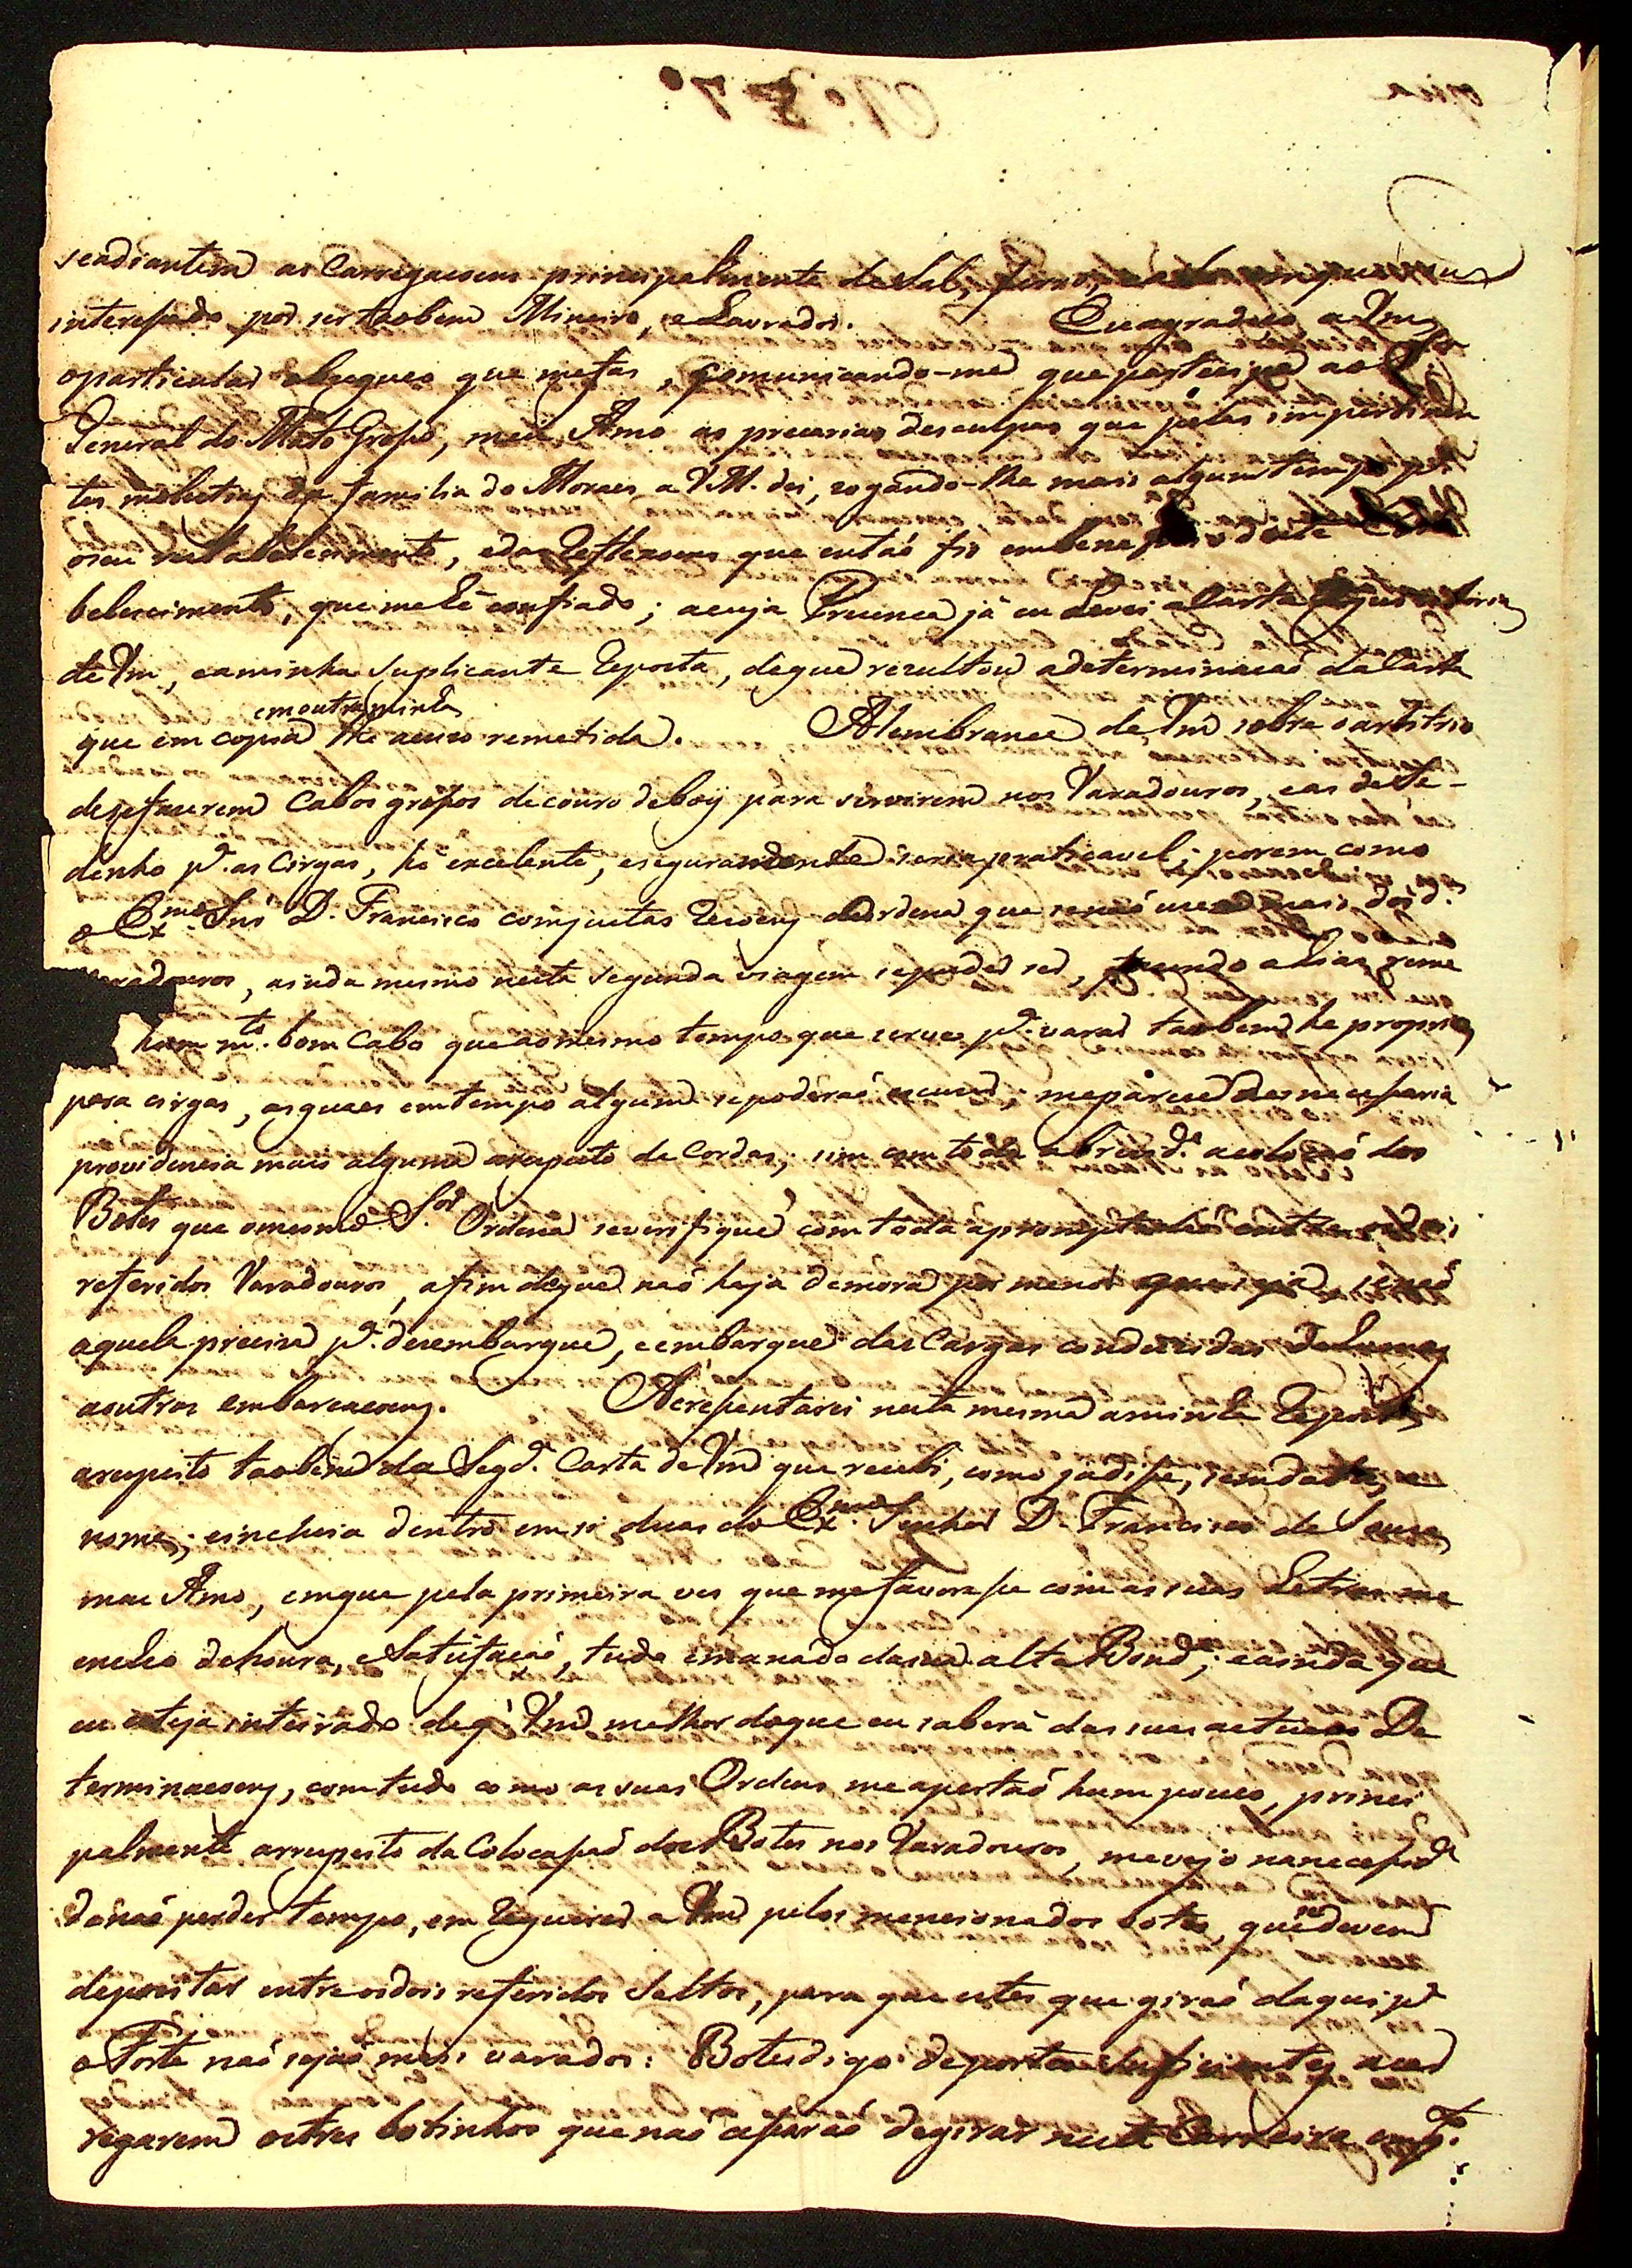 se adiantem as Carregacoens principalmente de Sal, ferro,
interesado por ser taobem Mineiro, e Lavrador. Eu agradeço a Vm
o particular obzequeo que me faz, comunicando-me que partecipa ao
General do Mato Groso, meu Amo as precarias desculpas que pelas impertinen
tes molestias da familia do Moraes a V.M. dei, rogando-lhe mais algum tempo pa
o seu restabelecimento, e das Reflexoens que entaõ fis em benefiçio deste Esta
belecimento, que me hé confiado; a cuja Prezença já eu levei a Carta
de Vm, e a minha Suplicante Reposta, de que rezultou a determinacaõ da Carta
em outra minha
que em copia lhe acuzo remetida. A lembrança de Vm sobre o arbitrio
de se fazerem Cabos grosos de couro de boy para servirem nos Varadouros, e as de Se-
denho pa. as Cirgas, hé excelente, e seguramente seria praticavel; porem como
o Exmo. Snr D. Francisco com justas Rezoens ordena que se naõ uze mais dos ds.
Varadouros, ainda mesmo nesta segunda viagem se puder ser, fazendo alias reme
hum mto. bom Cabo que ao mesmo tempo que serve pa. varar taobem he proprio
para cirgas, as quaes em tempo algum se poderaõ escuzar; me parece desnecesaria
providencia mais alguma a respeito de Cordas; sim com toda a brevide. a colocaõ dos
Botes que o mesmo Sor. Ordena se verifique com toda a promptidaõ entre os dois
referidos Varadouros, a fim de que naõ haja demora por menor que seja, senaõ
aquela preciza pa. dezembarque, e embarque das Cargas conduzidas de humas
a outras embarcacoens. Acresentarei nesta mesma a minha Reposta
a respeito taobem da Segda. Carta de Vm que recebi, como já dise, sem data, e
nome; e incluia dentro em si duas do Exmo. Senhor D. Francisco de Souza
meu Amo, em que pela primeira ves que me favorese com as suas Letras me
encheo de honra, e Satisfaçaõ, tudo emanado da sua alta Bonde; e ainda que
eu esteja inteirado de q' Vm melhor do que eu saberá das suas actuaes De
terminacoens, com tudo como as suas Ordens me apertaõ hum pouco, princi
palmente a respeito da Colocasaõ dos Botes nos Varadouros, me vejo na neceside
de naõ perder tempo, em Requerer a Vm pelos mencionados botes, que se devem
depozitar entre os dois referidos Saltos, para que estes que giraõ daqui pa
o Forte naõ sejaõ mais varados: Botes digo de portes suficientes a car
regarem os tres botinhos que naõ cesaraõ de girar nesta Carreira emqto.